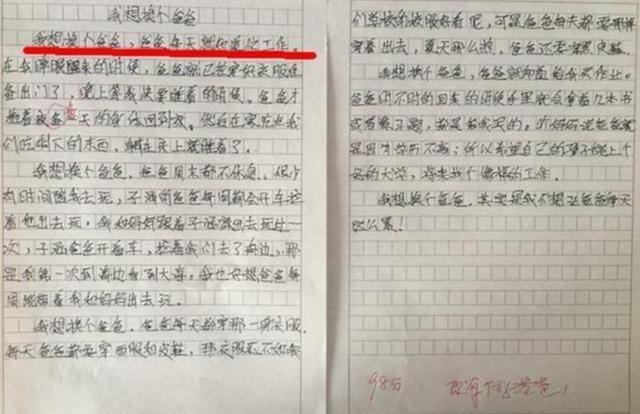 我想换个爸爸
我想换个爸爸，爸爸每天就知道说工作。
在我睡眼醒来的时候，爸爸就已经穿好衣服准
备出门了，晚上等我快要睡着的时候。爸爸才
拖着疲惫一天的身体回到家。
们吃剩下的东西，躺在床上就睡着了。
我想换个爸爸，爸爸周末都不休息，很少
有时间陪我去玩，子涵的爸爸每周都会开车拉
着他出去玩。我和妈妈跟着子涵出去玩过一
次，子涵爸爸开着车，拉着我们去了海边，那
是我第一次到海边看到大海，我也好想爸爸每
周能带着我和妈妈出去玩。
我想换个爸爸，爸爸每天都穿那一身衣服，
每天爸爸都要穿西服和皮鞋，那衣服还不如我
们学校的校服好看呢，可是爸爸每天都要
穿着出去，夏天那么热，爸爸还要穿
我想换个爸爸，爸爸就知道给我买作业。
爸爸时不时的回来的时候手里就会拿着几本书
或者练习题，都是给我买的。听妈妈说爸爸就
是因为学历不高，所以希望自己的孩子能上个
好的大学，将来找个好的工作。
我想换个爸爸，其实是我不想让爸爸每天
这么累！
98分